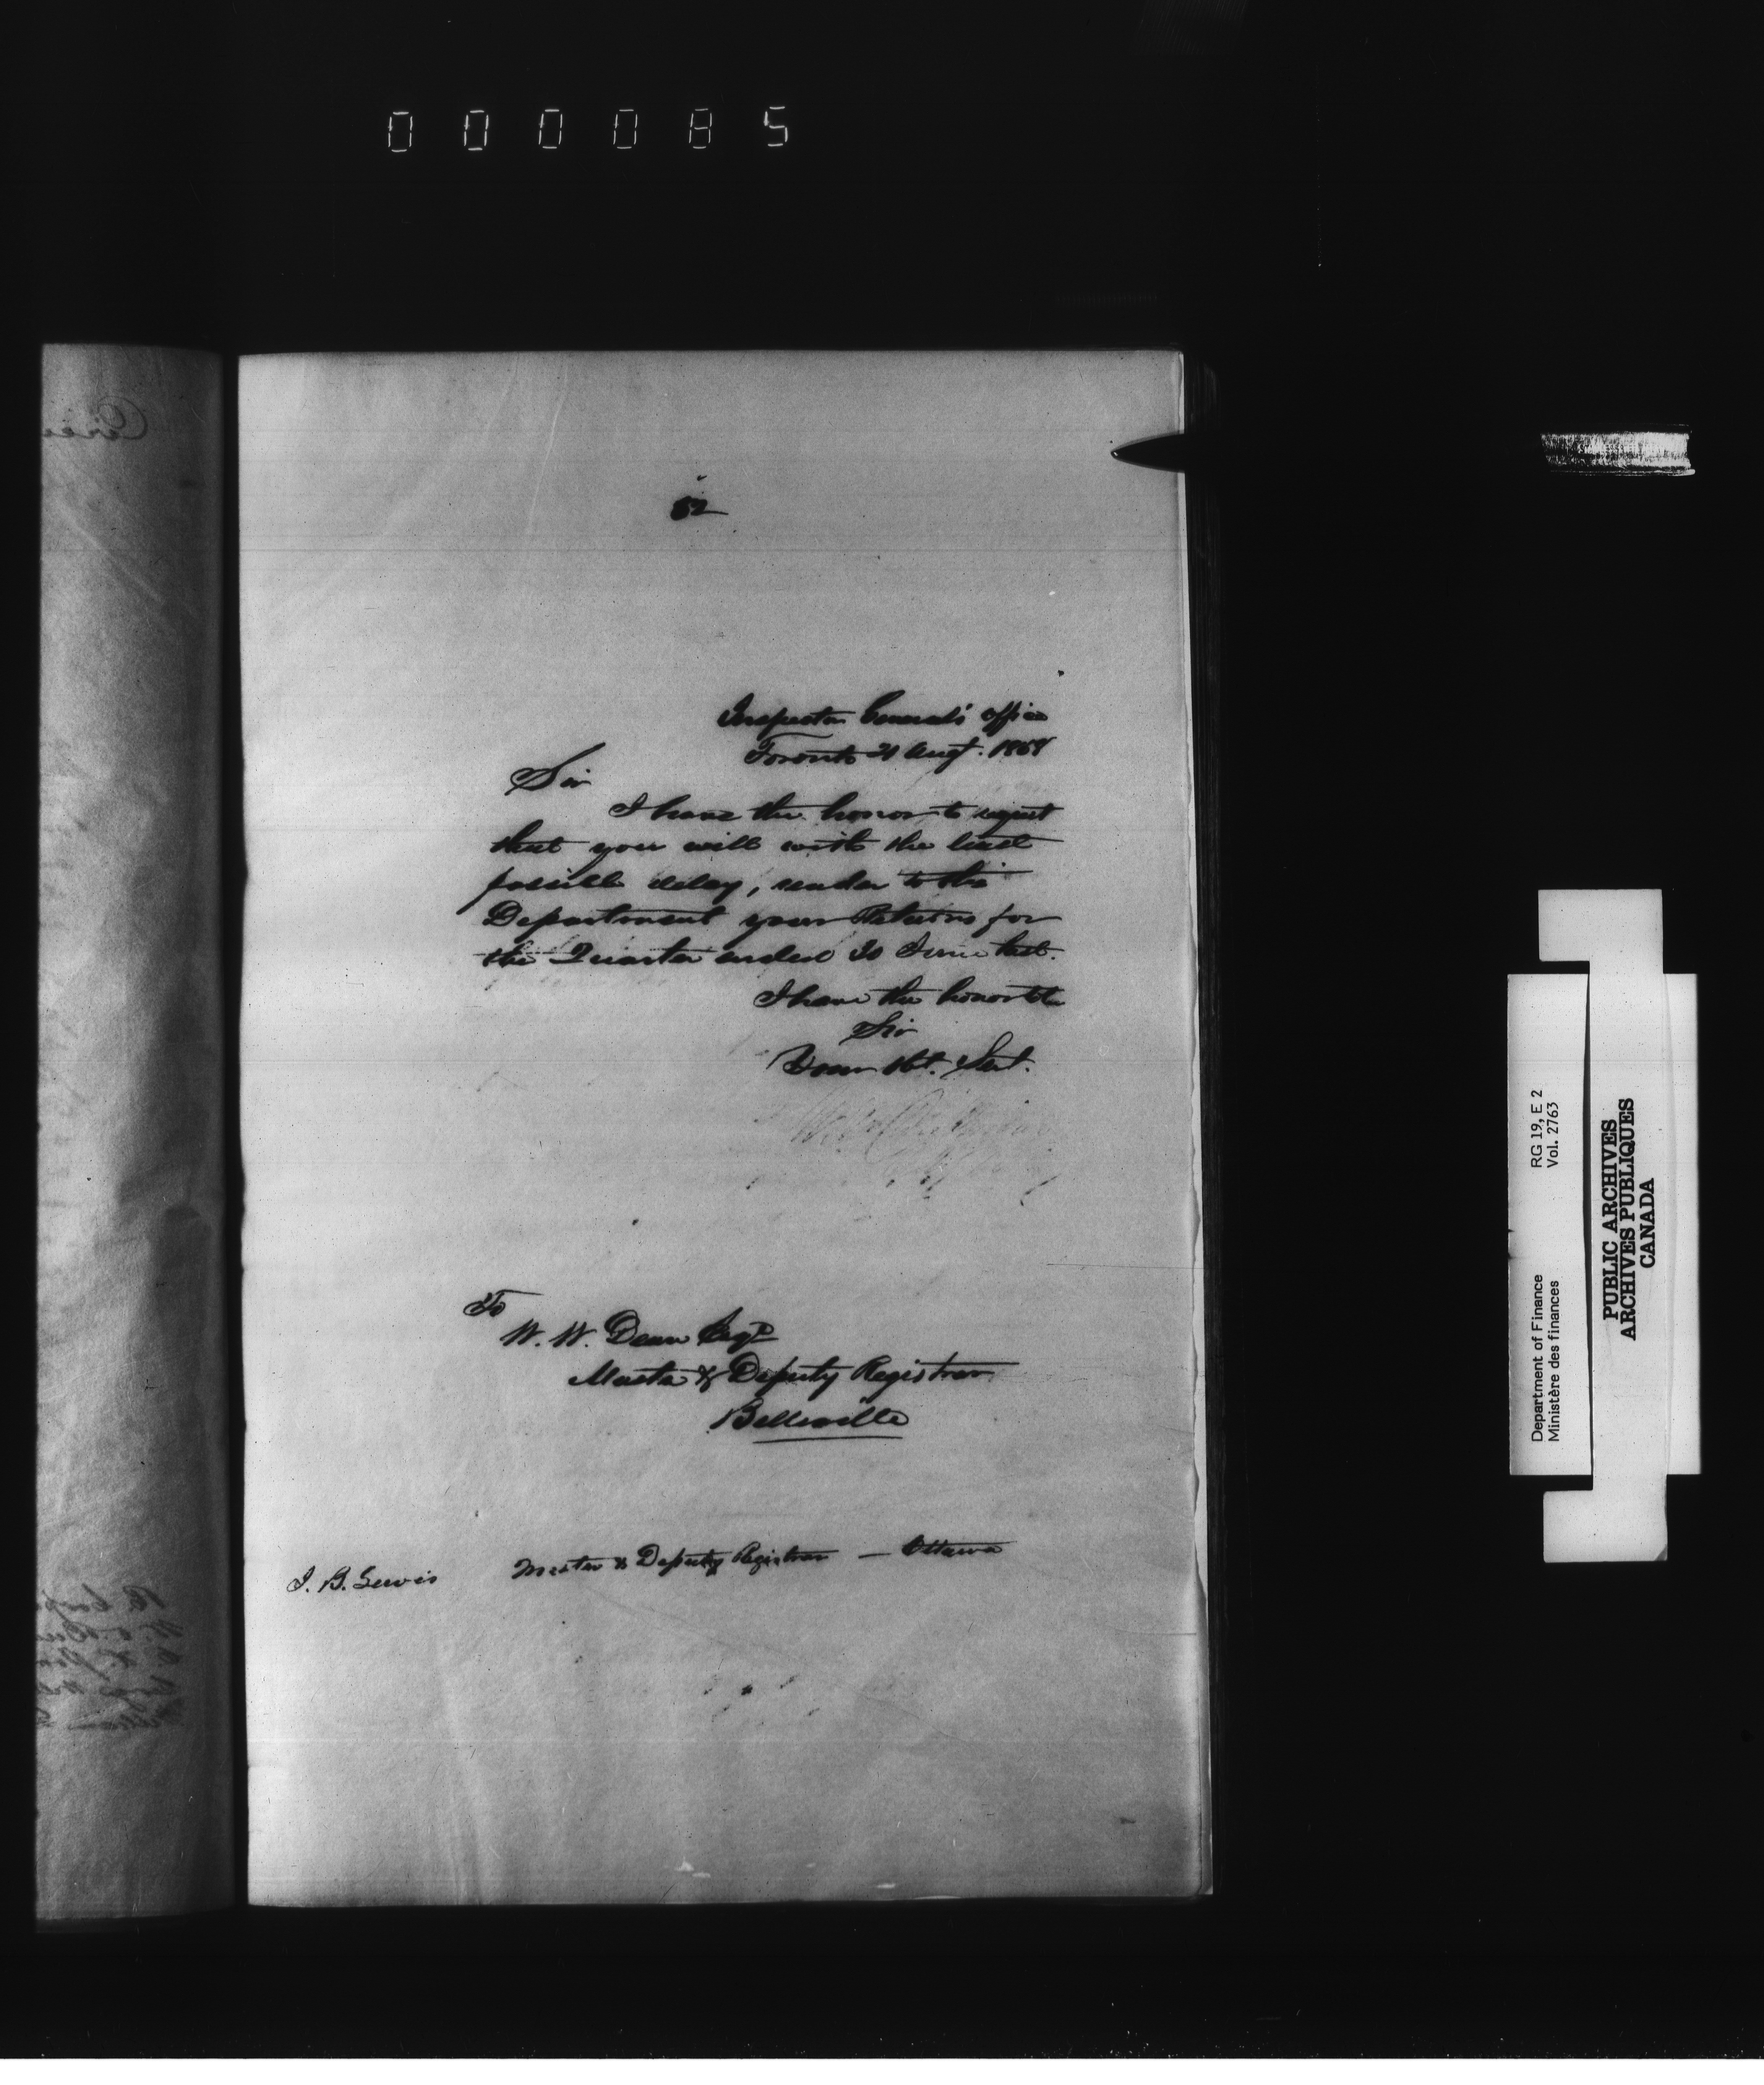 000085
82
Inspector General's Office
Toronto 21 Augt. 1858
Sir
I have the honor to request
that you will with the least
possible delay, render to this
Department your Returns for
the Quarter ended 30 June last.
I have the honor to be
Sir
Your Obt. Servt.
To
W. W. Dean Esqr
Master & Deputy Registrar
Belleville
J. B. Lewis Master & Deputy Registrar — Ottawa
Department of Finance RG 19, E 2
Ministère des finances Vol. 2763
PUBLIC ARCHIVES
ARCHIVES PUBLIQUES
CANADA